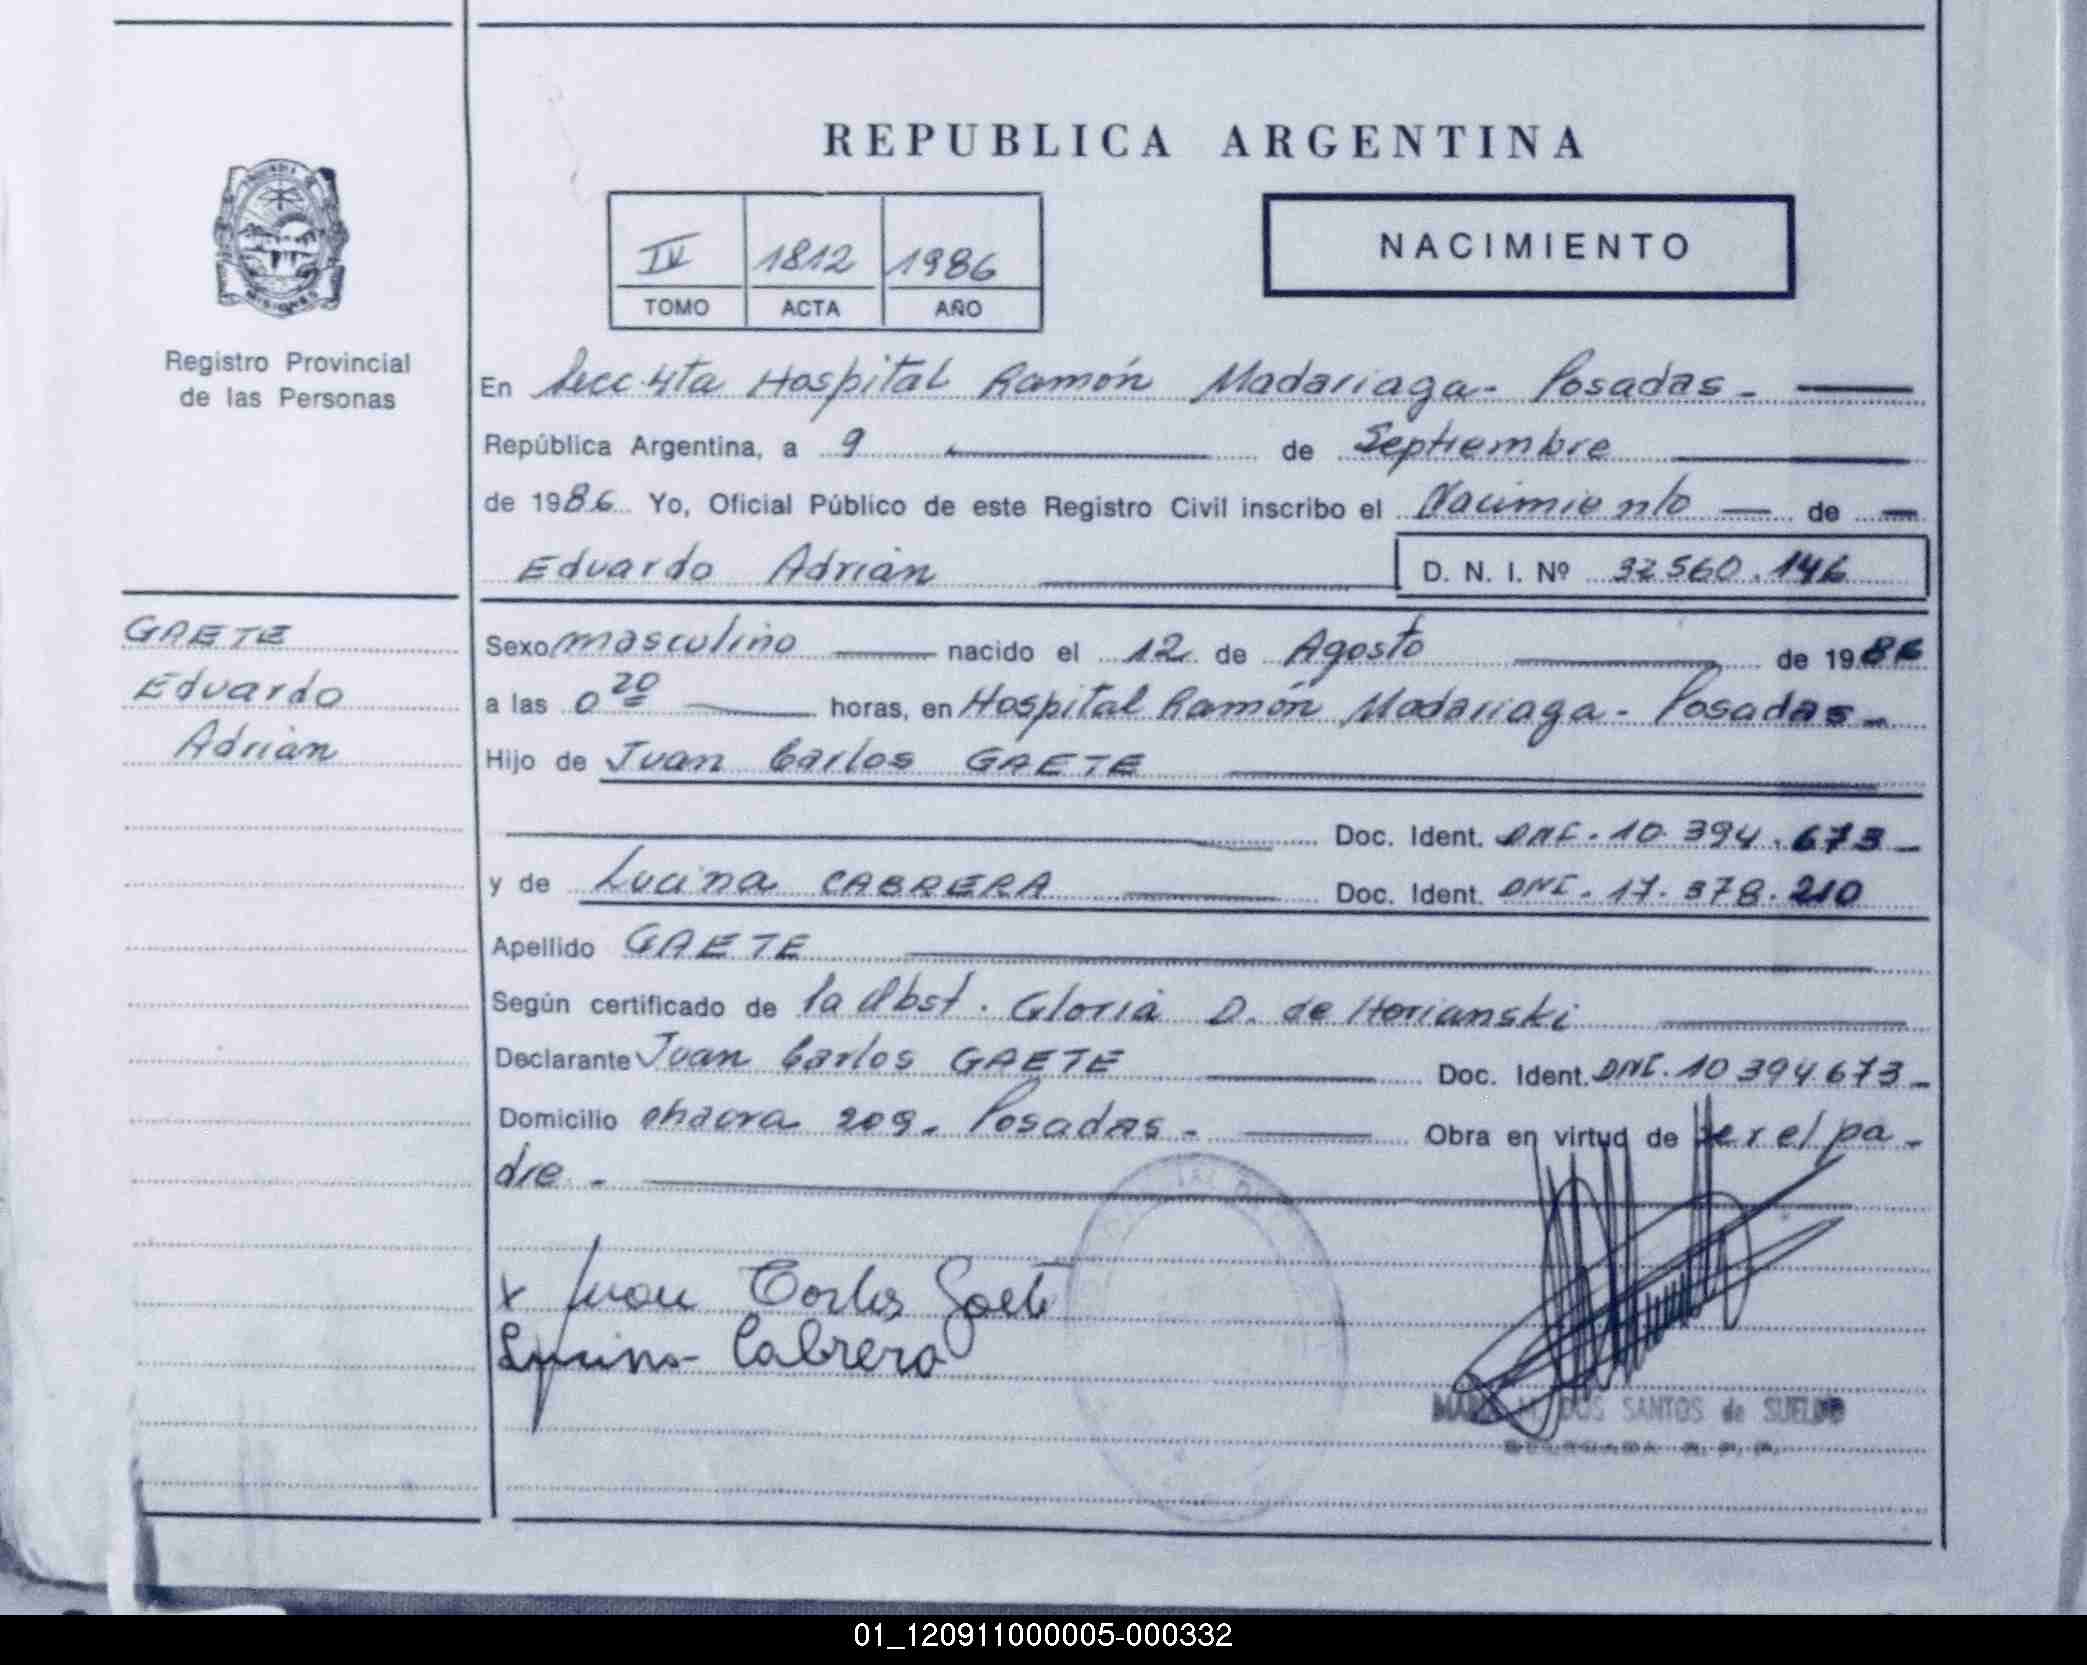 REPUBLICA ARGENTINA
IV 1812 1986
TOMO ACTA AÑO
NACIMIENTO
MISIONES
Registro Provincial
de las Personas
En Secc. 4ta Hospital Ramón Madariaga - Posadas -
República Argentina, a 9 de Septiembre
de 1986 Yo, Oficial Público de este Registro Civil inscribo el Nacimiento de
Eduardo Adrián D. N. I. Nº 32560.146
GAETE
Eduardo
Adrián
Sexo masculino nacido el 12 de Agosto de 1986
a las 0 20 horas, en Hospital Ramón Madariaga - Posadas -
Hijo de Juan Carlos GAETE
Doc. Ident. DNI. 10.394.673 -
y de Lucina CABRERA Doc. Ident. DNI. 17.378.210
Apellido GAETE
Según certificado de la Obst. Gloria D. de Horianski
Declarante Juan Carlos GAETE Doc. Ident. DNI. 10 394.673 -
Domicilio chacra 209 - Posadas - Obra en virtud de ser el pa -
dre -
x Juan Carlos Gaete
Lucina Cabrera
DOS SANTOS de SUELDO
DELEGADA R. P. P.
01_120911000005-000332